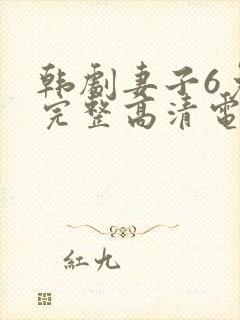 韩剧妻子6
完整高清電
紅九